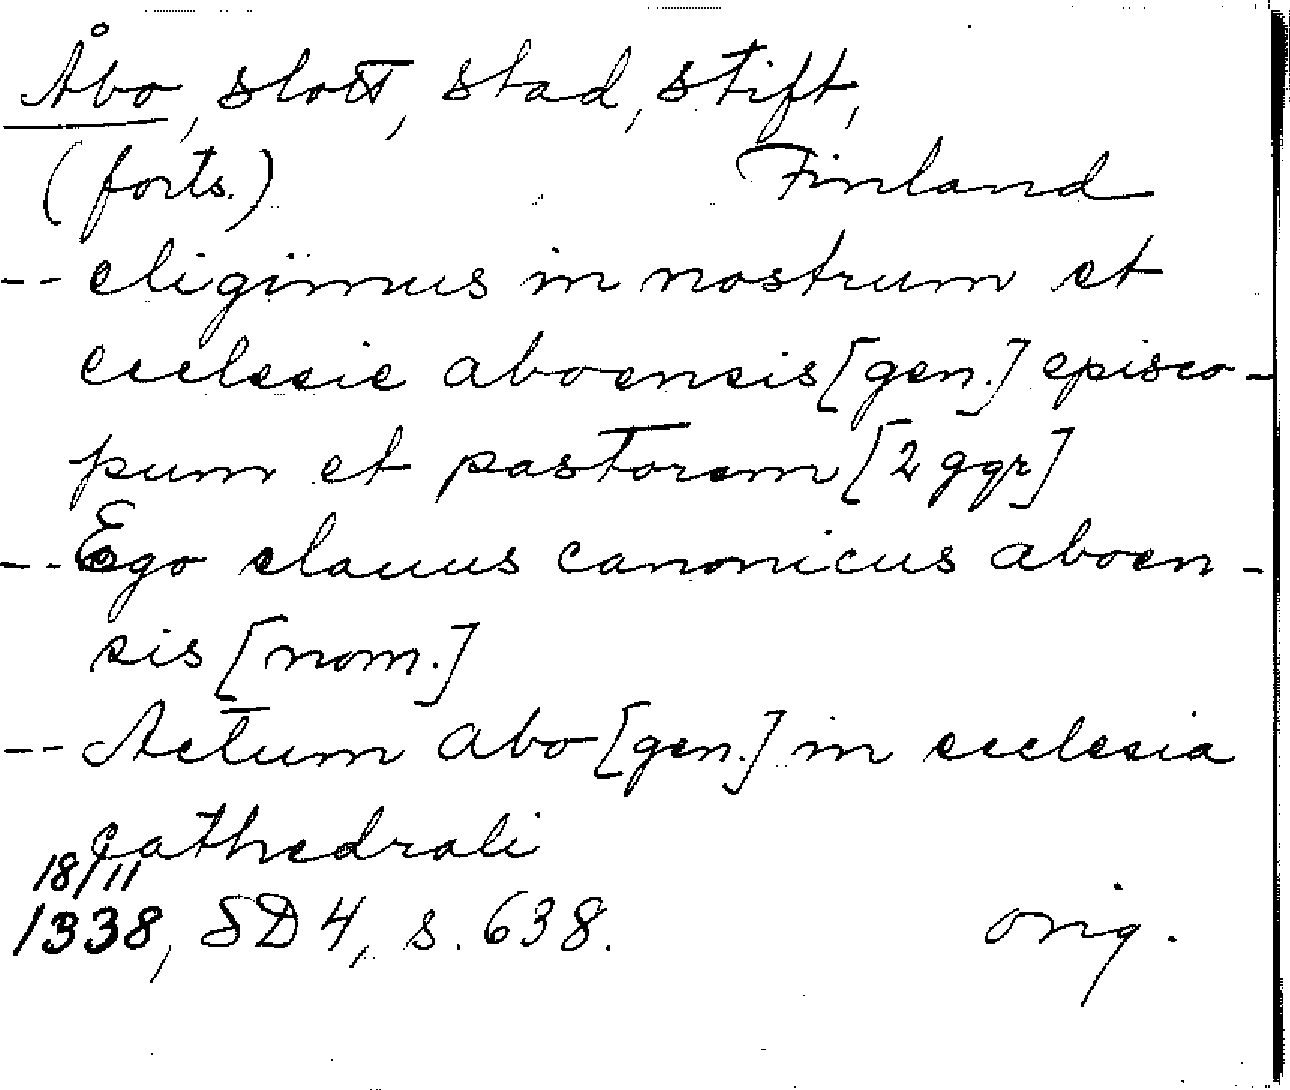 Åbo, slott, stad, stift,
(forts.) Finland
-- eligimus in nostrum et
ecclesie aboensis [gen.] episco-
pum et pastorem [2 ggr]
-- Ego elauus canonicus aboen-
sis [nom.]
-- Actum abo [gen.] in ecclesia
cathedrali
18/11
1338, SD 4, s. 638. orig.